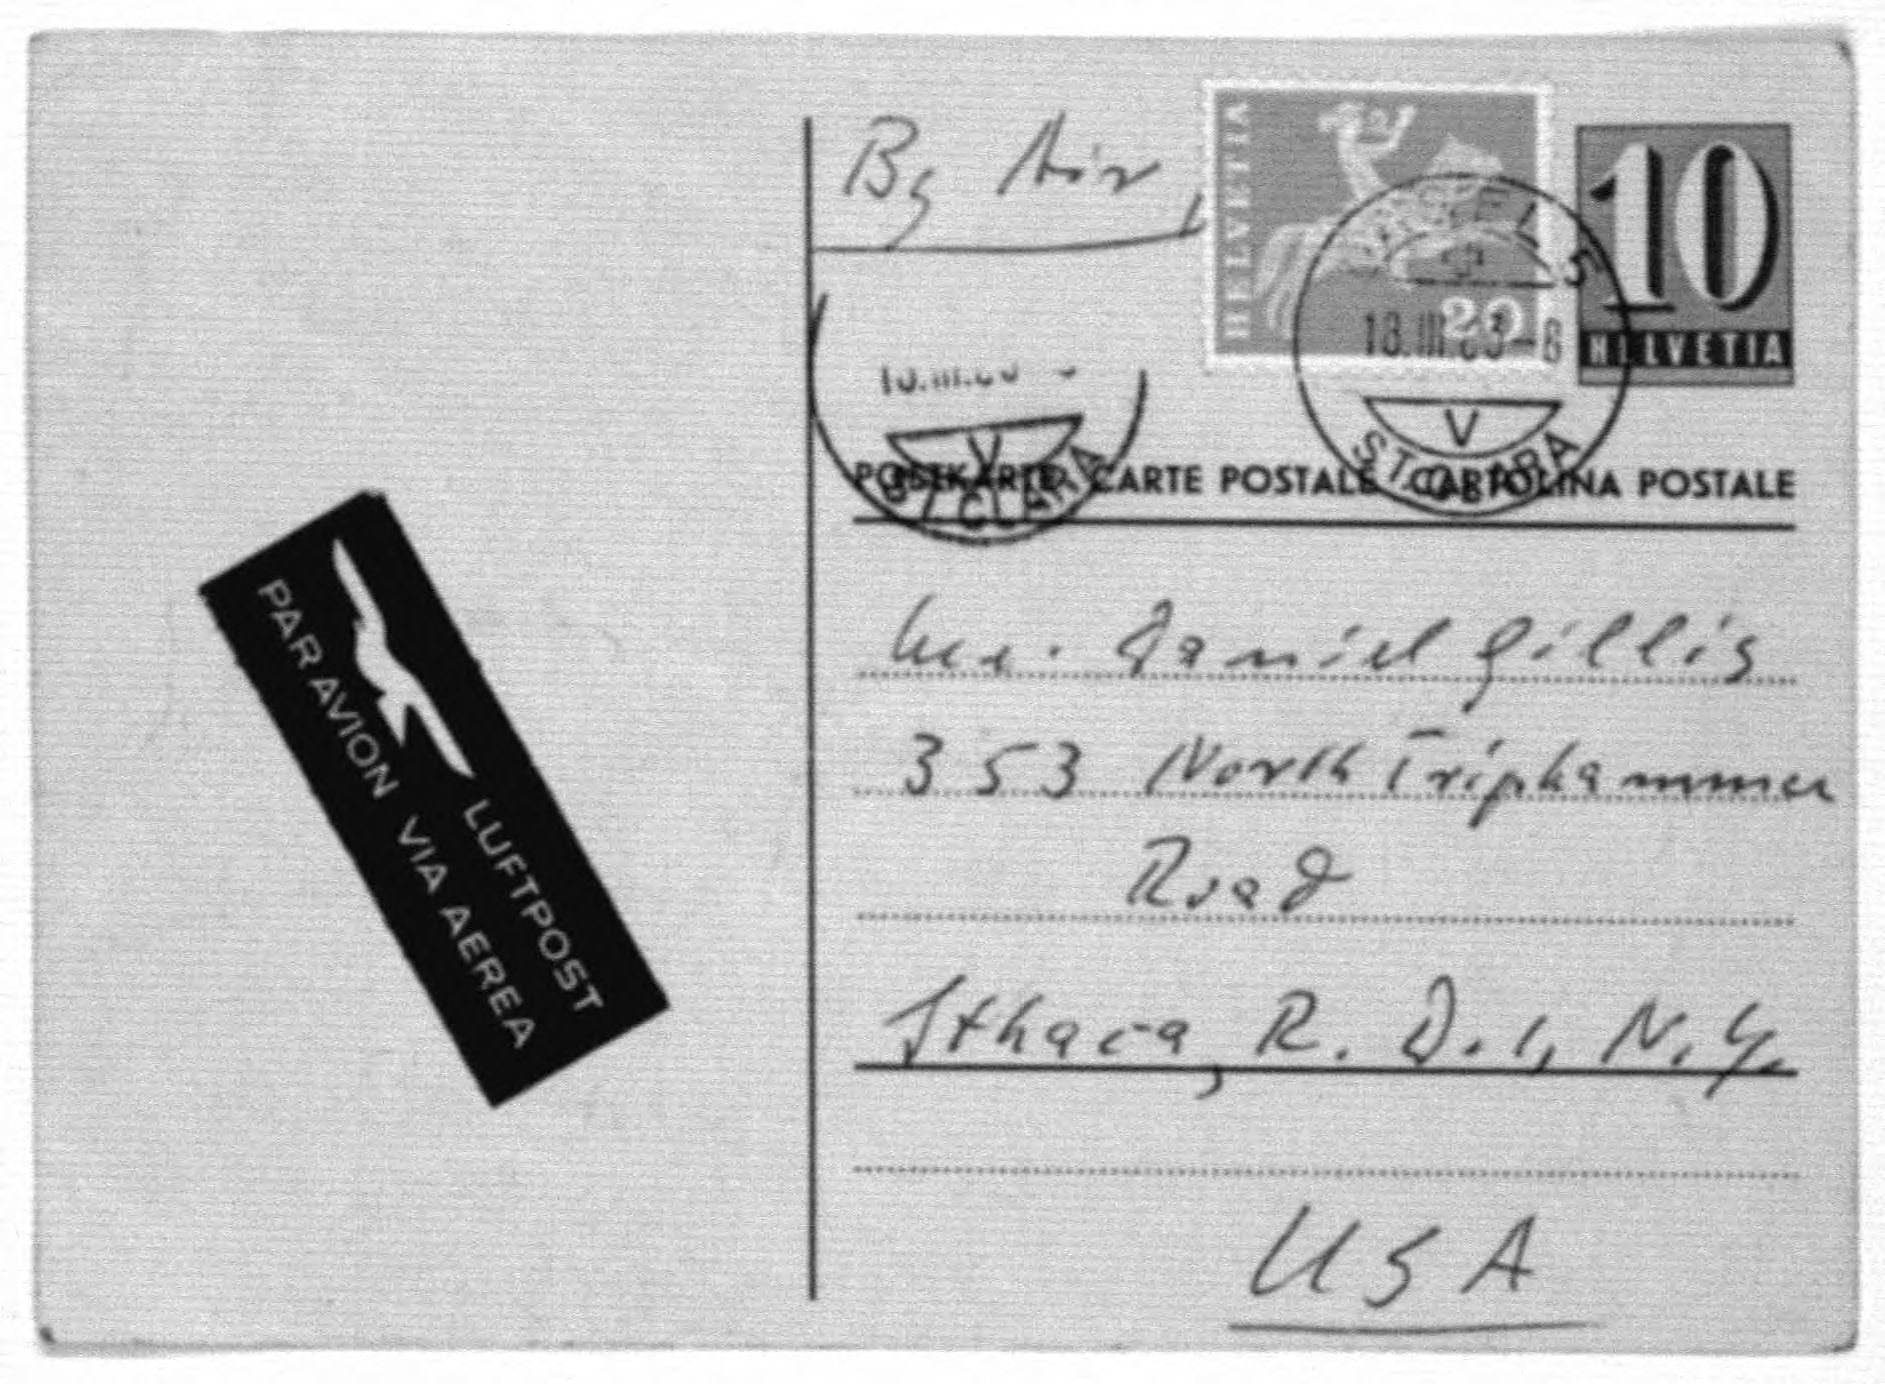 By Air
HELVETIA
20
10
HELVETIA
BASEL 5
18.III.63-6
V
ST.CLARA
V
ST.CLARA
POSTKARTE CARTE POSTALE CARTOLINA POSTALE
PAR AVION VIA AEREA
LUFTPOST
Mr. Daniel Gillis
353 North Triphammer
Road
Ithaca, R. D. 1, N. Y.
USA